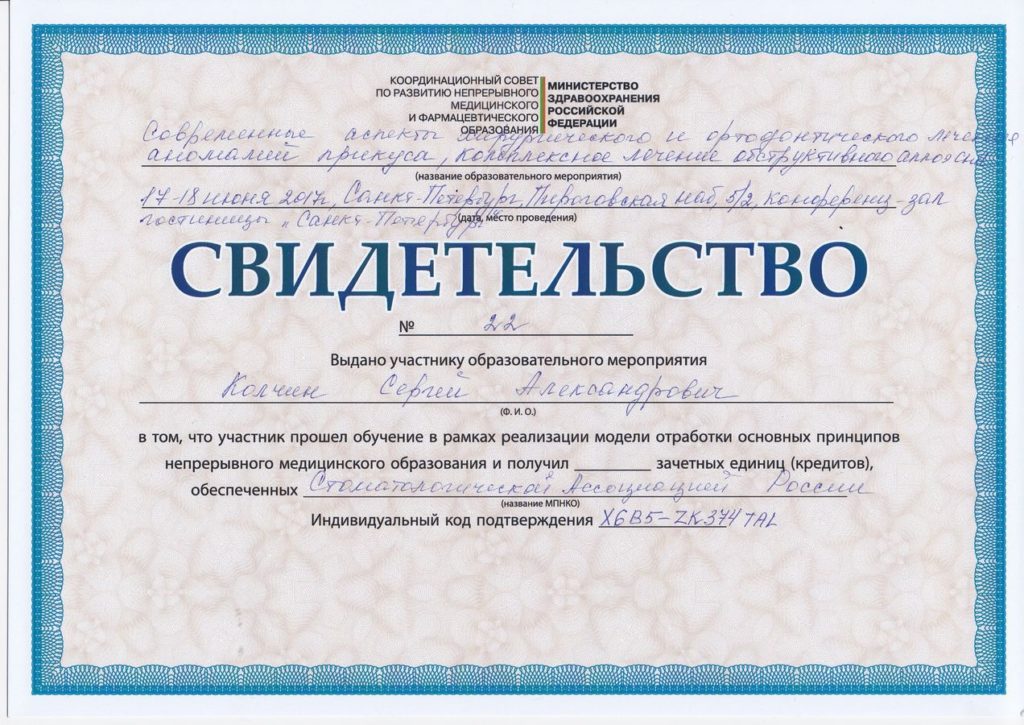 КООРДИНАЦИОННЫЙ СОВЕТ
ПО РАЗВИТИЮ НЕПРЕРЫВНОГО
МЕДИЦИНСКОГО
И ФАРМАЦЕВТИЧЕСКОГО
ОБРАЗОВАНИЯ
МИНИСТЕРСТВО
ЗДРАВООХРАНЕНИЯ
РОССИЙСКОЙ
ФЕДЕРАЦИИ
Современные аспекты хирургического и ортодонтического лечения
аномалий прикуса, Комплексное лечение обструктивного апноэ сна
(название образовательного мероприятия)
17-18 июня 2017г, Санкт-Петербург, Пироговская наб, 5/2, конференц-зал
гостиницы „Санкт-Петербург"
(дата, место проведения)
СВИДЕТЕЛЬСТВО
№ 22
Выдано участнику образовательного мероприятия
Колчин Сергей Александрович
(Ф. И. О.)
в том, что участник прошел обучение в рамках реализации модели отработки основных принципов
непрерывного медицинского образования и получил ________ зачетных единиц (кредитов),
обеспеченных Стоматологической Ассоциацией России
(название МПНКО)
Индивидуальный код подтверждения X6B5-ZK374TAL